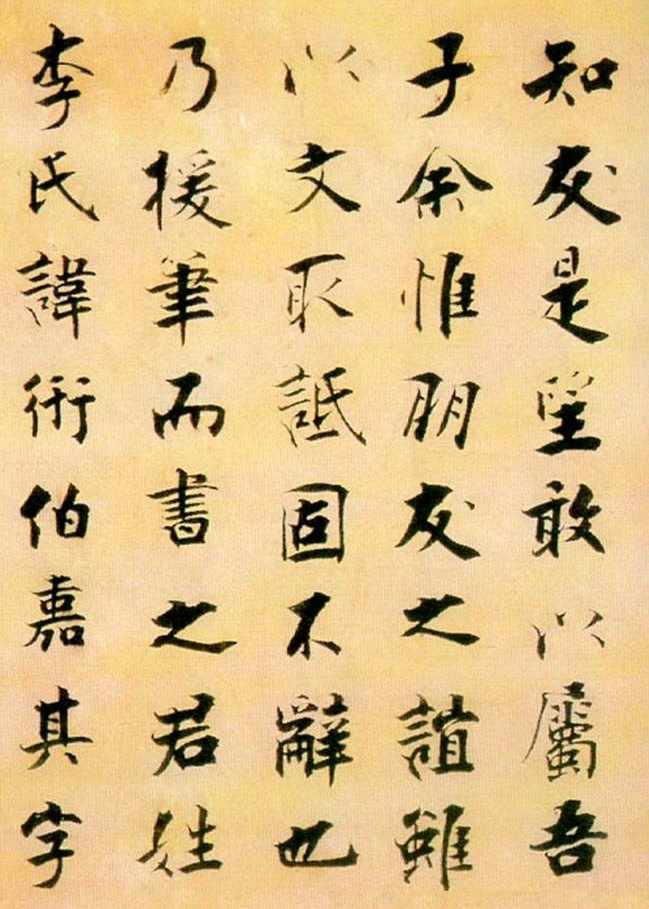 知友是望敢以屬吾
子余惟朋友之誼雖
以文取詆固不辭也
乃援筆而書之若姓
李氏諱衎伯嘉其字